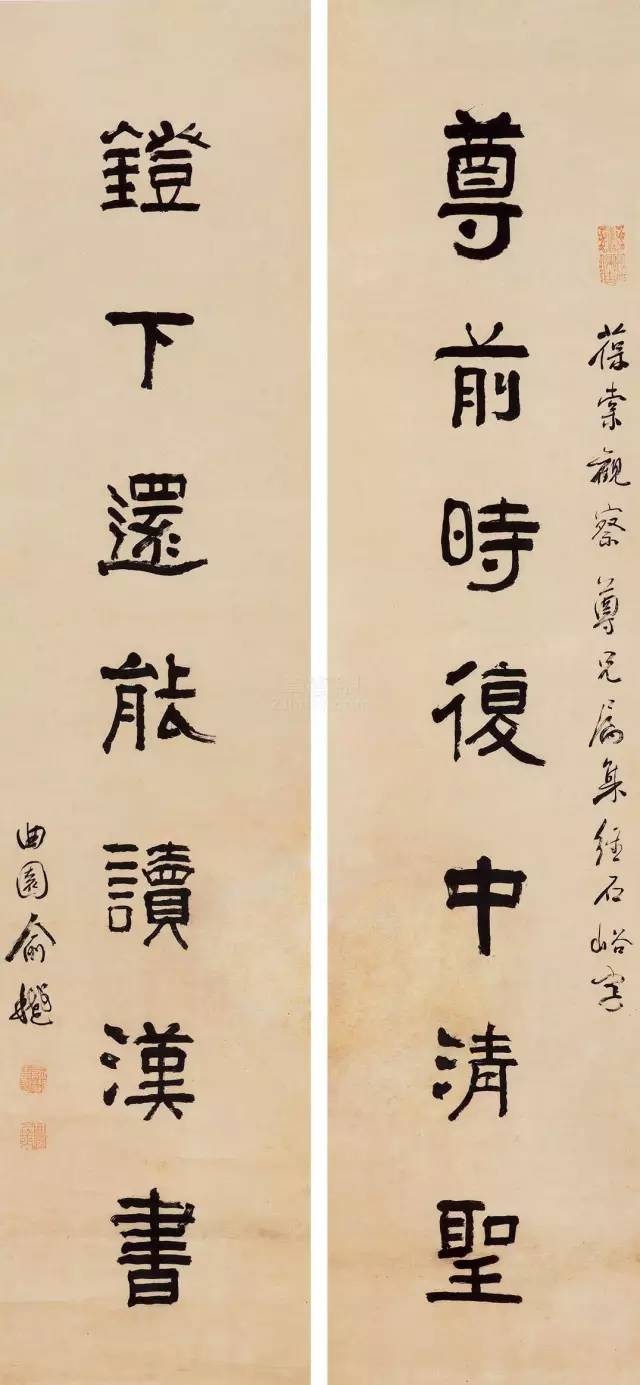 葆棠觀察尊兄屬集經石峪字
尊前時復中清聖
鐙下還能讀漢書
曲園俞樾